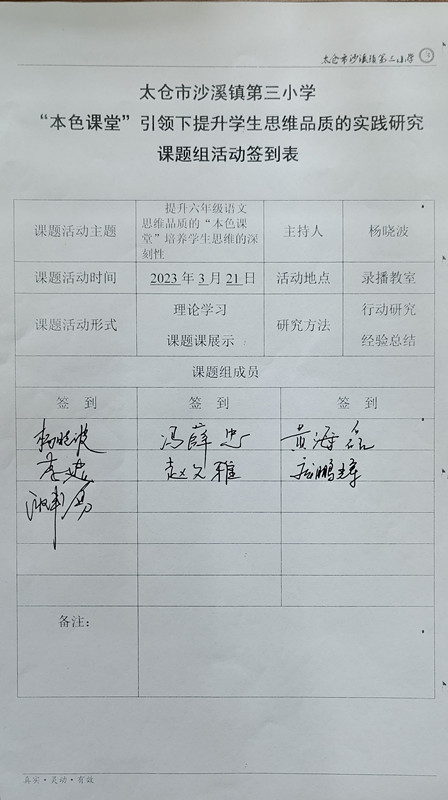 太仓市沙溪镇第三小学
太仓市沙溪镇第三小学
“本色课堂”引领下提升学生思维品质的实践研究
课题组活动签到表
课题活动主题
提升六年级语文
思维品质的“本色课
堂”培养学生思维的深
刻性
主持人
杨晓波
课题活动时间
2023年3月21日
活动地点
录播教室
课题活动形式
理论学习
课题课展示
研究方法
行动研究
经验总结
课题组成员
签 到
签 到
签 到
杨晓波
冯薛忠
黄海磊
赵允雅
备注：
真实·灵动·有效